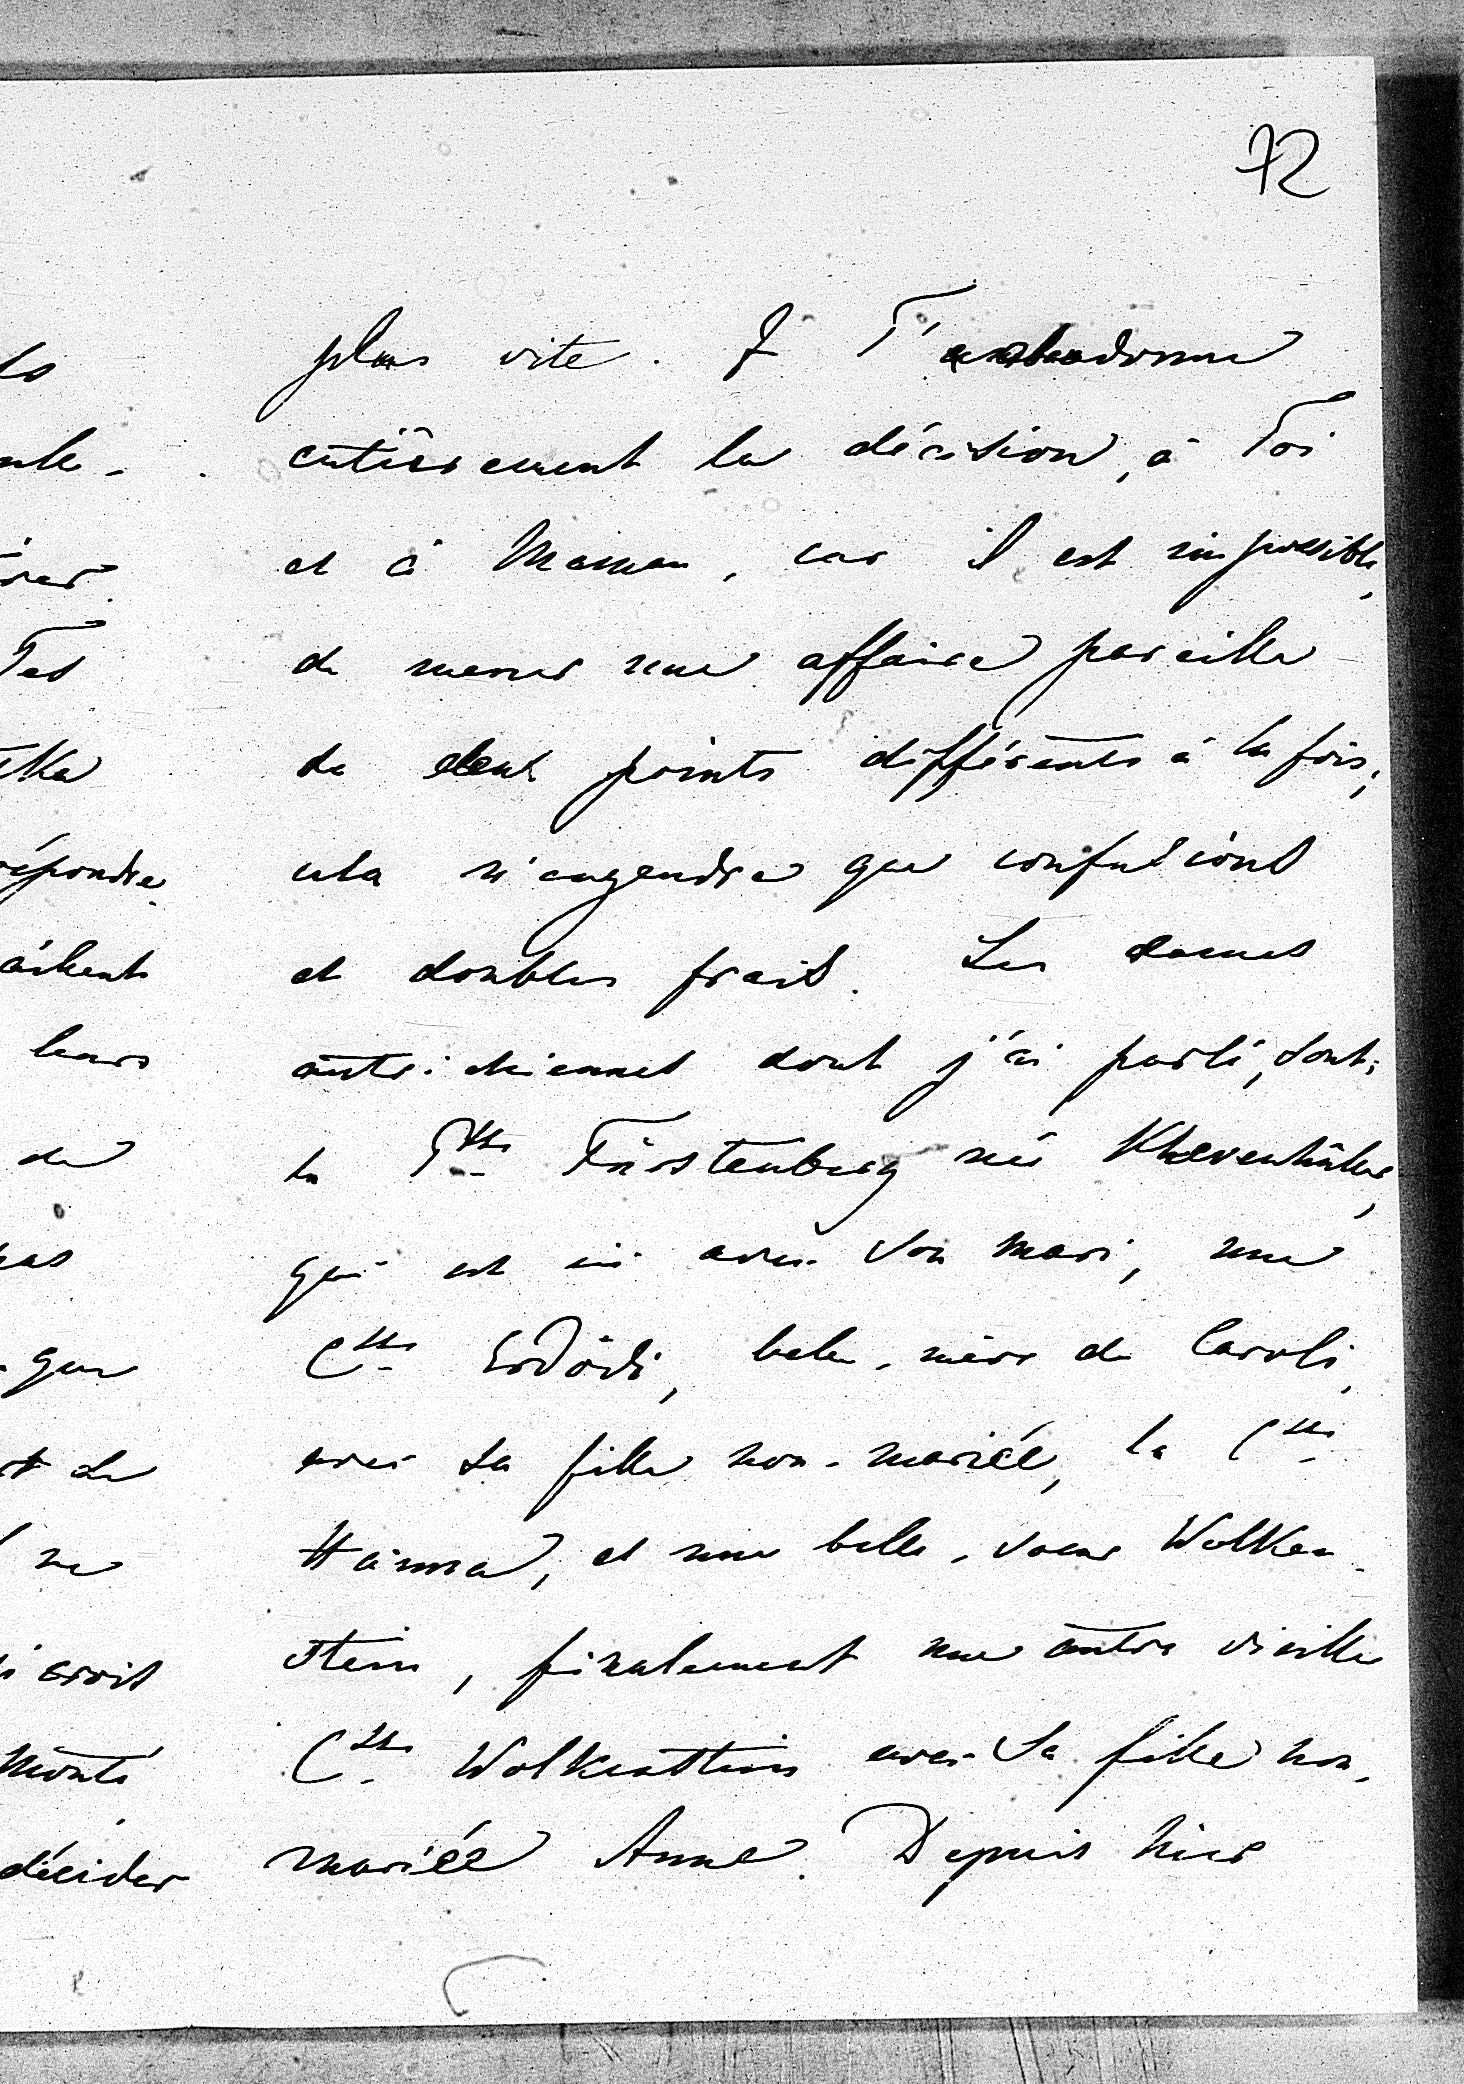 72
plus vite. J T'abandonne
entièrement la décision, à Toi
et à Maman, car il est impossible,
de mener une affaire pareille
de deux points différents à la fois;
cela n'engendre que confusions
et doubles frais. Les dames
autrichiennes dont j'ai parlé, sont:
la Psse Fürstenberg née Khevenhüller,
qui est ici avec son mari, une
Csse Erdödi, belle-mère de Caroli,
avec sa fille non-mariée, la Csse
Hanna, et une belle-soeur Wolken-
stein, finalement une autre vieille
Csse Wolkenstein avec sa fille non-
mariée Anne. Depuis hier
Tes
répondre
leurs
de
que
ne
croit
monté
décider